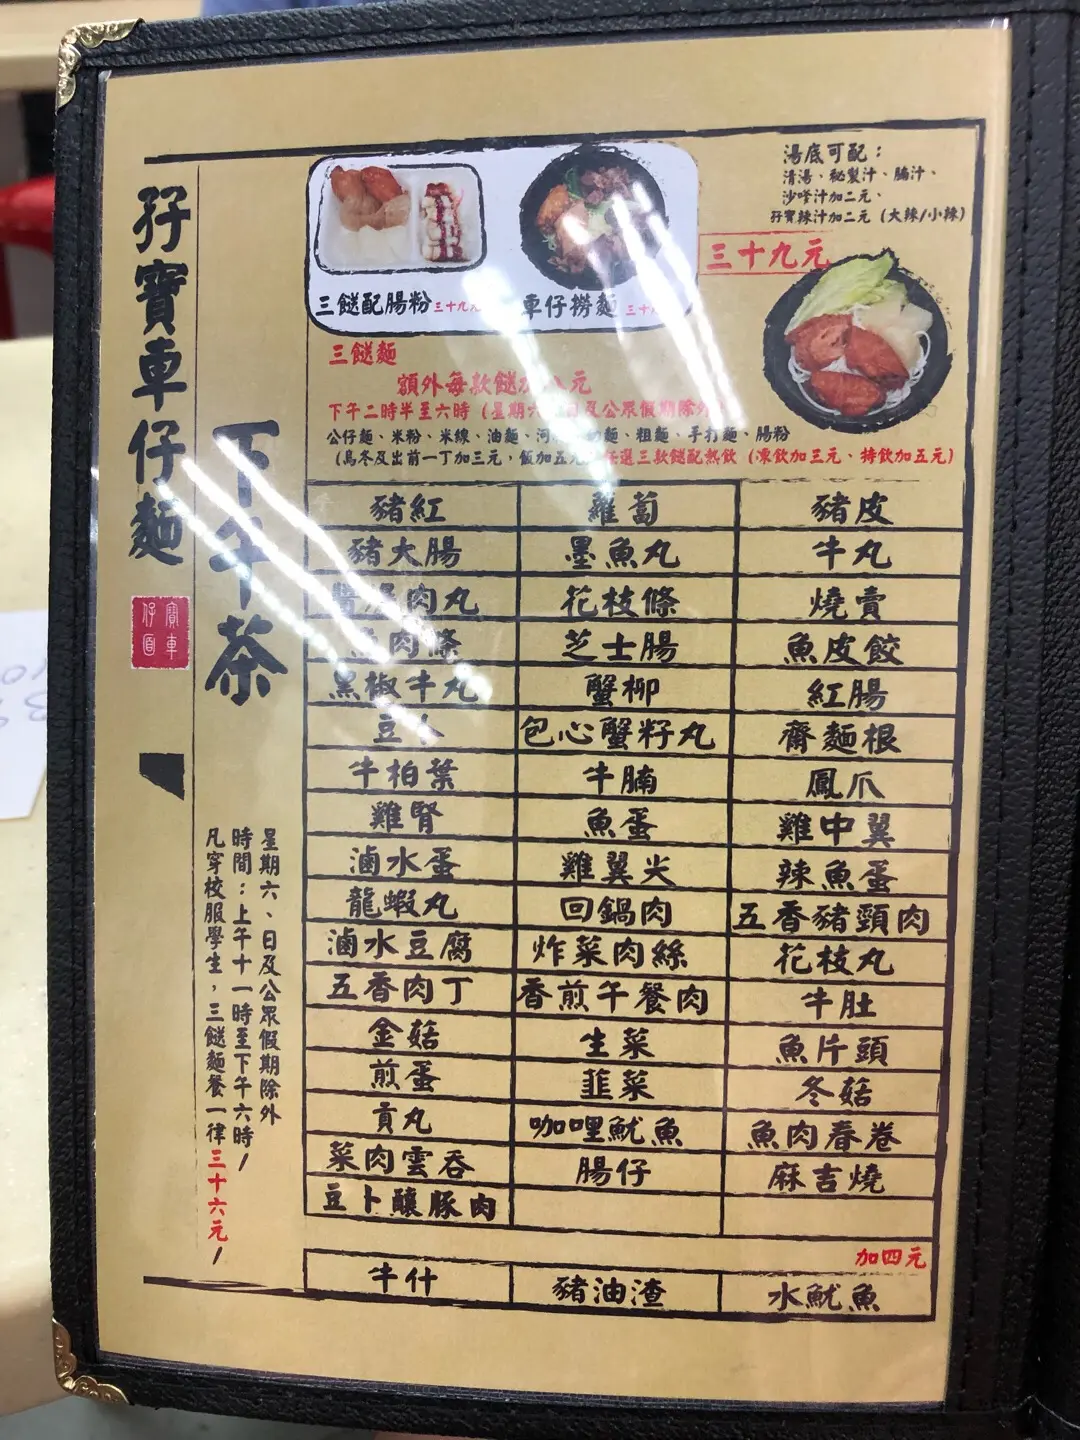 孖寶車仔麵
寶車
仔面
下午茶
星期六、日及公眾假期除外
時間：上午十一時至下午六時/
凡穿校服學生，三餸麵餐一律三十六元/
湯底可配：
清湯、秘製汁、腩汁、
沙嗲汁加二元、
孖寶辣汁加二元（大辣/小辣）
三十九元
三餸配腸粉 三十九元
車仔撈麵 三十
三餸麵
額外每款餸加 元
下午二時半至六時（星期六 日及公眾假期除外
公仔麵、米粉、米線、油麵、河 麵、粗麵、手打麵、腸粉
（烏冬及出前一丁加三元，飯加五 任選三款餸配熱飲（凍飲加三元、特飲加五元）
豬紅 蘿蔔 豬皮
豬大腸 墨魚丸 牛丸
肉丸 花枝條 燒賣
魚肉條 芝士腸 魚皮餃
黑椒牛丸 蟹柳 紅腸
豆卜 包心蟹籽丸 齋麵根
牛柏葉 牛腩 鳳爪
雞腎 魚蛋 雞中翼
滷水蛋 雞翼尖 辣魚蛋
龍蝦丸 回鍋肉 五香豬頸肉
滷水豆腐 炸菜肉絲 花枝丸
五香肉丁 香煎午餐肉 牛肚
金菇 生菜 魚片頭
煎蛋 韮菜 冬菇
貢丸 咖哩魷魚 魚肉春卷
菜肉雲吞 腸仔 麻吉燒
豆卜釀豚肉
加四元
牛什 豬油渣 水魷魚